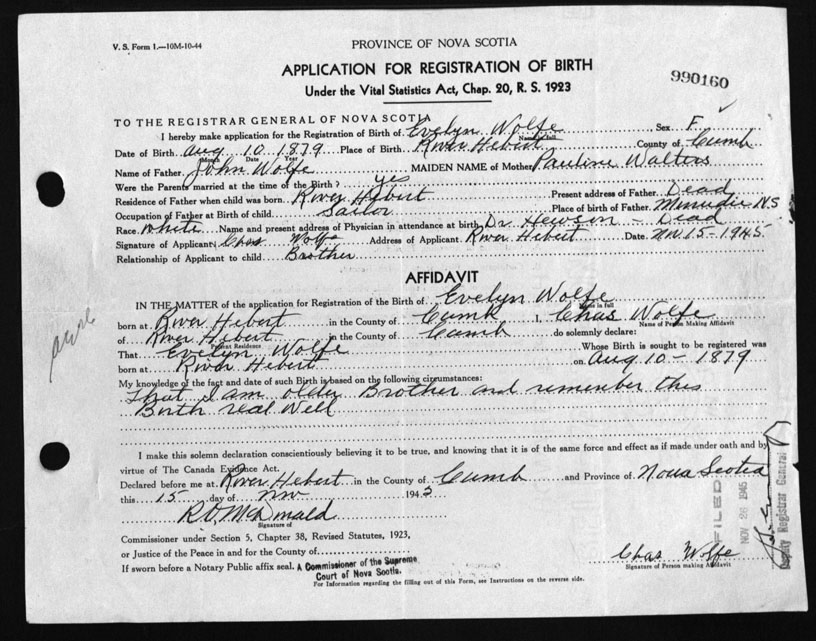 V. S. Form 1.—10M-10-44
PROVINCE OF NOVA SCOTIA
APPLICATION FOR REGISTRATION OF BIRTH
Under the Vital Statistics Act, Chap. 20, R. S. 1923
990160
TO THE REGISTRAR GENERAL OF NOVA SCOTIA
I hereby make application for the Registration of Birth of Evelyn Wolfe Sex F
Name in full
Date of Birth Aug 10 1879 Place of Birth River Hebert County of Cumb
Month Date Year
Name of Father John Wolfe MAIDEN NAME of Mother Pauline Walters
Were the Parents married at the time of the Birth? yes
Residence of Father when child was born River Hebert Present address of Father Dead
Occupation of Father at Birth of child Sailor Place of birth of Father Minudie N S
Race white Name and present address of Physician in attendance at birth Dr Hewson – Dead
Signature of Applicant Chas Wolfe Address of Applicant River Hebert Date Nov 15 – 1945
Relationship of Applicant to child Brother
AFFIDAVIT
IN THE MATTER of the application for Registration of the Birth of Evelyn Wolfe
Name in full
born at River Hebert in the County of Cumb I, Chas Wolfe
Name of Person Making Affidavit
of River Hebert in the County of Cumb do solemnly declare:
Present Residence
That Evelyn Wolfe Whose Birth is sought to be registered was
born at River Hebert on Aug 10 – 1879
My knowledge of the fact and date of such Birth is based on the following circumstances:
That I am older Brother and remember this
Birth real well
I make this solemn declaration conscientiously believing it to be true, and knowing that it is of the same force and effect as if made under oath and by
virtue of The Canada Evidence Act.
Declared before me at River Hebert in the County of Cumb and Province of Nova Scotia
this 15 day of Nov 1945
Signature of
Commissioner under Section 5, Chapter 38, Revised Statutes, 1923,
or Justice of the Peace in and for the County of
If sworn before a Notary Public affix seal. A Commissioner of the Supreme
Court of Nova Scotia.
Chas Wolfe
Signature of Person making Affidavit
For Information regarding the filling out of this Form, see Instructions on the reverse side.
FILED
NOV 26 1945
Deputy Registrar General